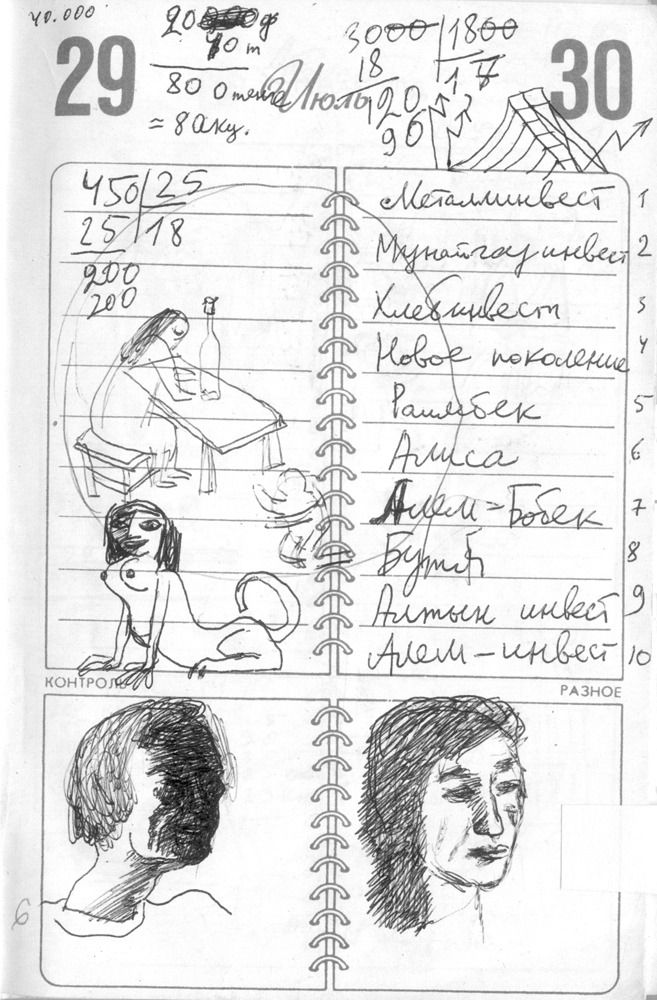 40.000
29
80 0 тенге
= 8 акц.
Июль
3000 1800
18 1 7
120
90
30
450 25
25 18
200
200
Металлинвест 1
Мунайгаз инвест 2
Хлебинвест 3
Новое поколение 4
Раимбек 5
Алиса 6
Алем-Бобек 7
8
Алтын инвест 9
Алем-инвест 10
КОНТРОЛЬ
РАЗНОЕ
6